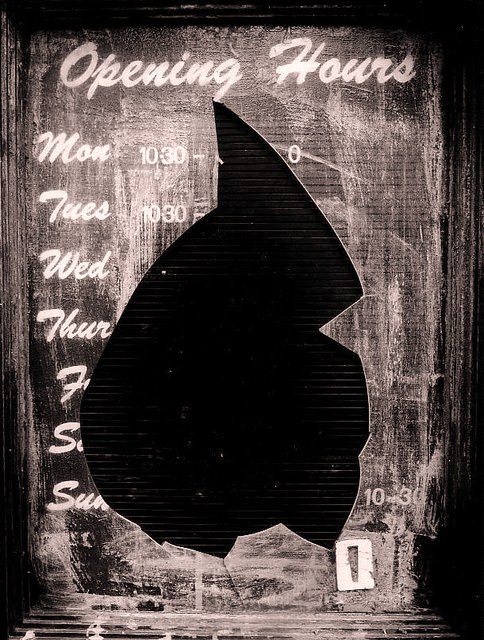 Opening Hours
Mon 10·30 – 0
Tues 10·30
Wed
Thur
F
S
Sun 10–30